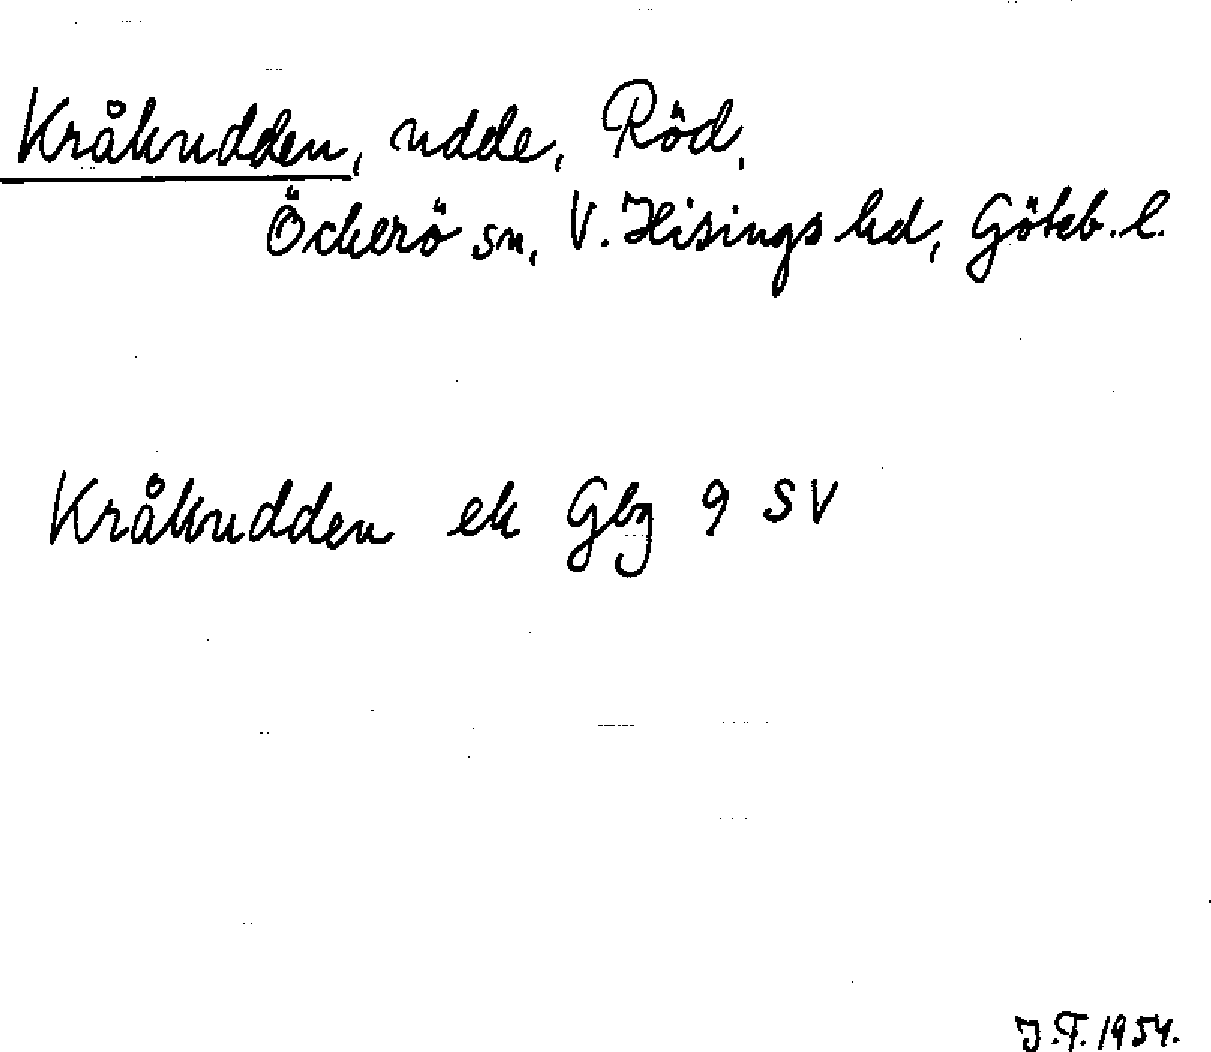 Kråkudden, udde, Röd,
Öckerö sn, V. Hisings hd, Göteb. l.
Kråkudden ek Gbg 9 SV
J.T. 1954.